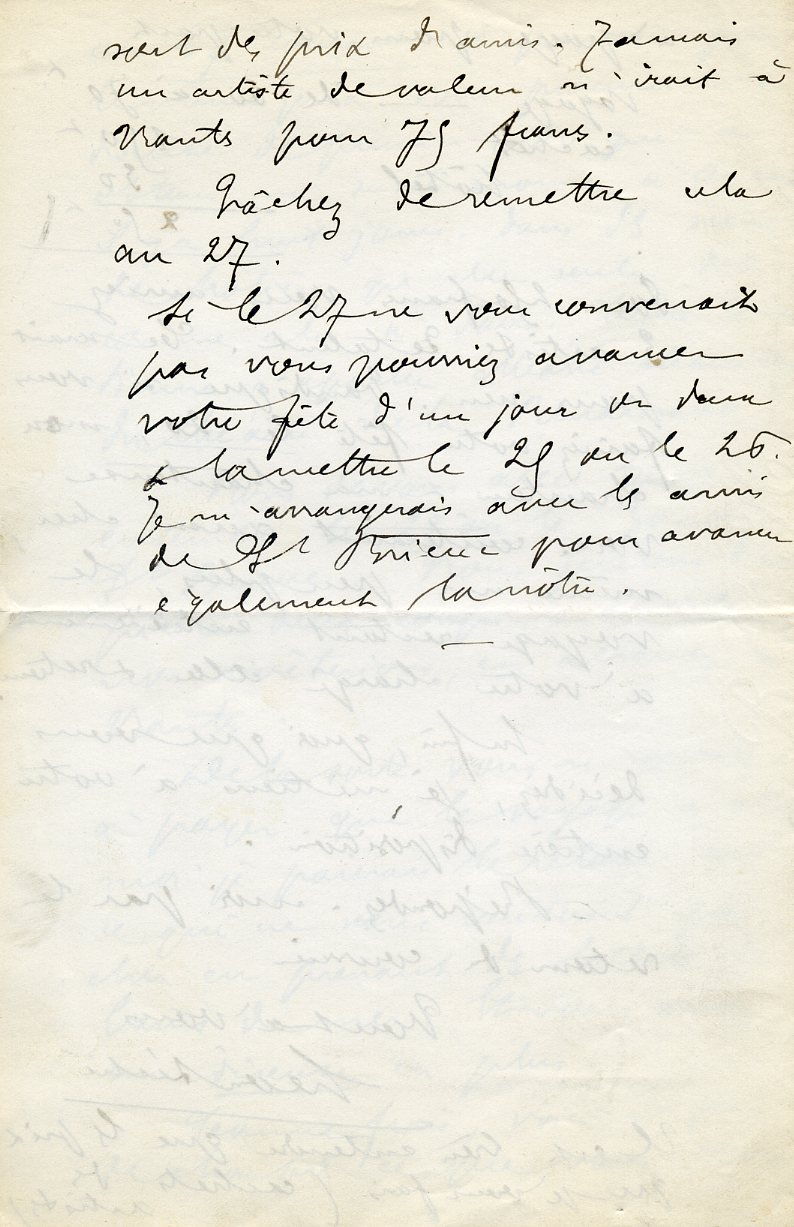 sont des prix d'amis. Jamais
un artiste de valeur n'irait à
Nantes pour 75 francs.
Tâchez de remettre cela
au 27.
Si le 27 ne vous convenait
pas vous pourriez avancer
votre fête d'un jour ou deux
& la mettre le 25 ou le 26.
Je m'arrangerais avec les amis
de St Brieuc pour avancer
également la nôtre.